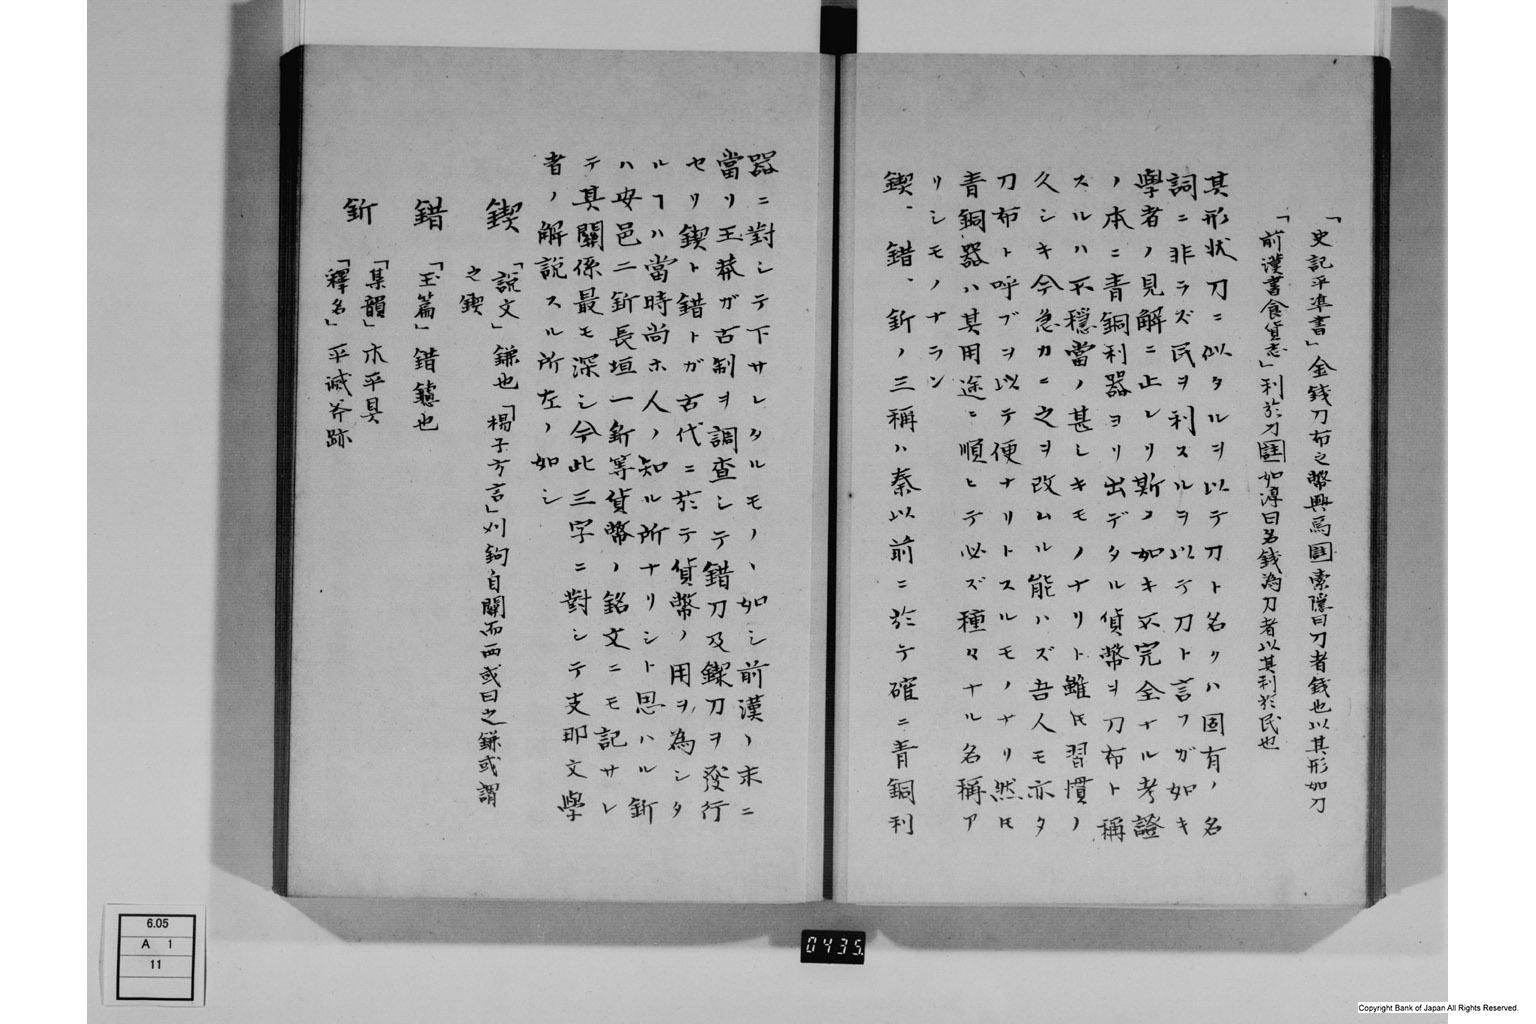 「史記平準書」金錢刀布之幣興焉註索隱曰刀者錢也以其形如刀
「前漢書食貨志」利於刀註如淳曰名錢為刀者以其利於民也
其形状刀ニ似タルヲ以テ刀ト名ケハ固有ノ名
詞ニ非ラズ民ヲ利スルヲ以テ刀ト言フガ如キ
學者ノ見解ニ止レリ斯ノ如キ不完全ナル考證
ノ本ニ青銅利器ヨリ出デタル貨幣ヲ刀布ト稱
スルハ不穩當ノ甚シキモノナリト雖モ習慣ノ
久シキ今急カニ之ヲ改ムル能ハズ吾人モ亦タ
刀布ト呼ブヲ以テ便ナリトスルモノナリ然ﾄﾓ
青銅器ハ其用途ニ順ヒテ必ズ種々ナル名稱ア
リシモノナラン
鍥、錯、釿ノ三稱ハ秦以前ニ於テ確ニ青銅利
器ニ對シテ下サレタルモノヽ如シ前漢ノ末ニ
當リ王莽ガ古制ヲ調查シテ錯刀及鍥刀ヲ發行
セリ鍥ト錯トガ古代ニ於テ貨幣ノ用ヲ為シタ
ルヿハ當時尚ホ人ノ知ル所ナリシト思ハル釿
ハ安邑二釿長垣一釿等貨幣ノ銘文ニモ記サレ
テ其關係最モ深シ今此三字ニ對シテ支那文學
者ノ解説スル所左ノ如シ
鍥 「説文」鎌也「楊子方言」刈鉤自關而西或曰之鎌或謂
之鍥
錯 「玉篇」錯鑢也
釿 「集韻」木平具
「釋名」平滅斧跡
6.05
A 1
11
0435
Copyright Bank of Japan All Rights Reserved.